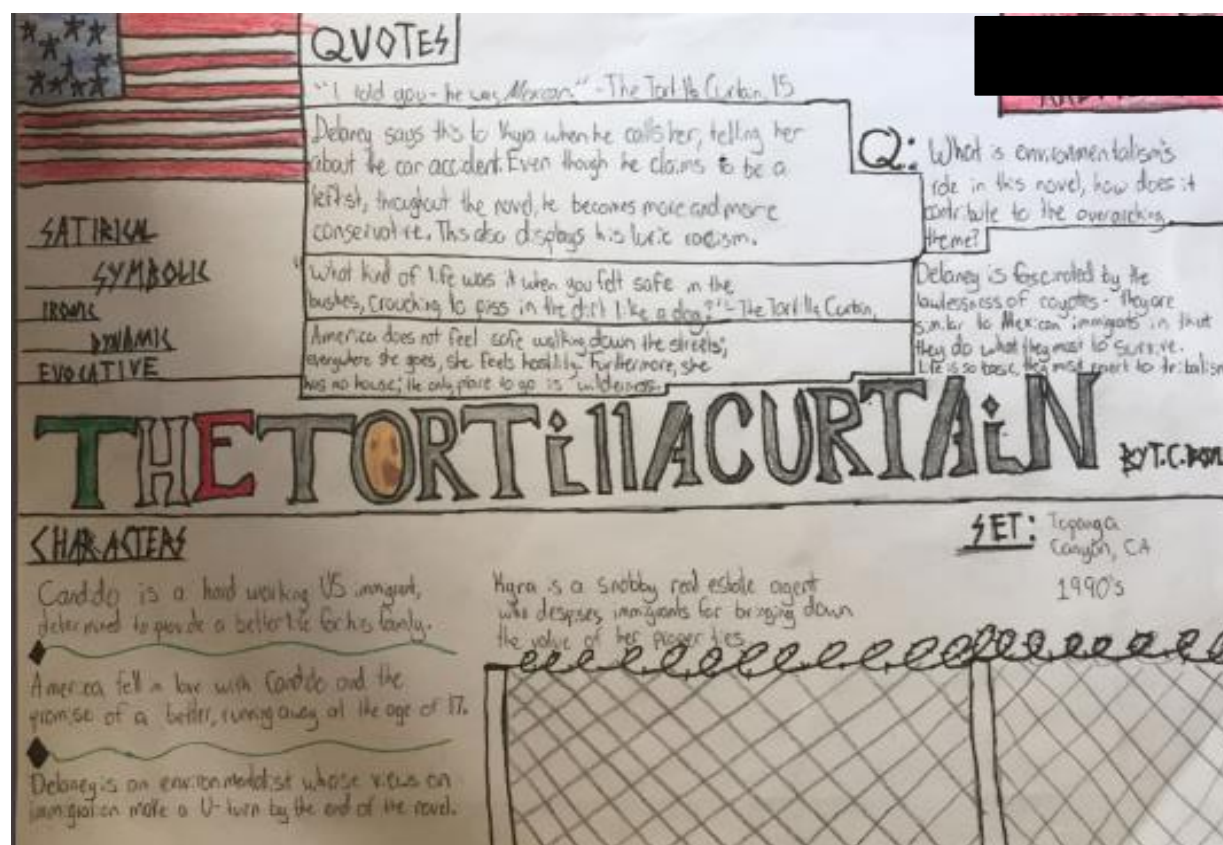 QUOTES
"I told you - he was Mexican." - The Tortilla Curtain, 15
Delaney says this to Kyra when he calls her, telling her
about the car accident. Even though he claims to be a
leftist, throughout the novel, he becomes more and more
conservative. This also displays his racism.
"What kind of life was it when you felt safe in the
bushes, crouching to piss in the dirt like a dog?" - The Tortilla Curtain,
America does not feel safe walking down the streets;
everywhere she goes, she feels hostility. Furthermore, she
has no house; the only place to go is wilderness.
SATIRICAL
SYMBOLIC
IRONIC
DYNAMIC
EVOCATIVE
Q: What is environmentalism's
role in this novel, how does it
contribute to the overarching
theme?
Delaney is fascinated by the
lawlessness of coyotes - they are
similar to Mexican immigrants in that
they do what they must to survive.
Life is so base, they must resort to tribalism
THE TORTillA CURTAiN
BY T.C.
CHARACTERS
Candido is a hard working US immigrant,
determined to provide a better life for his family.
America fell in love with Candido and the
promise of a better, running away at the age of 17.
Delaney is an environmentalist whose views on
immigration make a U-turn by the end of the novel.
Kyra is a snobby real estate agent
who despises immigrants for bringing down
the value of her properties.
SET: Topanga
Canyon, CA
1990's